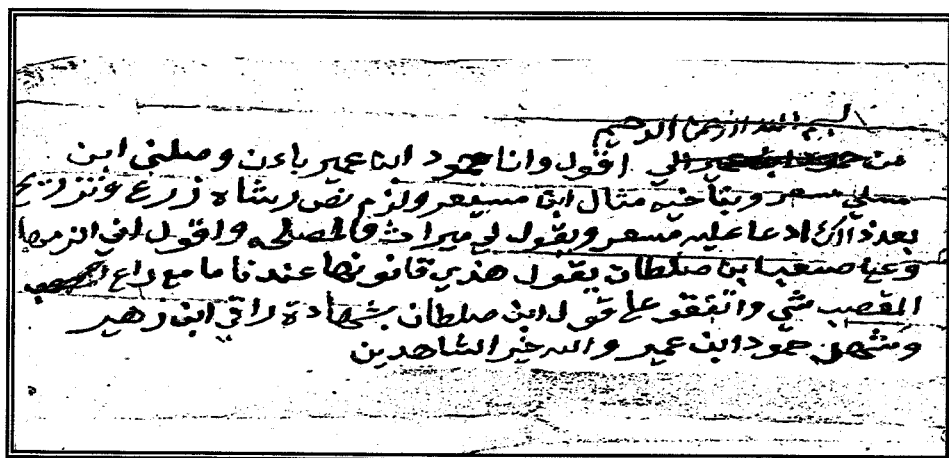 بسم الله الرحمن الرحيم
من حمود ابن عمير الي اقول وانا حمود ابن عمير باءن وصلني ابن
مسلي مسعر وبتأخيه مثال ابن مسيعر ولزم نص رشاه زرع
بعد ذالك ادعا عليه مسعر ويقول لي ميراث والمصلحه واقول اني الزمها
وعيا صنعيبا ابن صلطان يقول هذي قانونها عندنا ما مع راع
المقصب شي واتفقو علي قول ابن صلطان بشهادة راقي ابن زهير
ومشهلي حمود ابن عمير والله خير الشاهدين